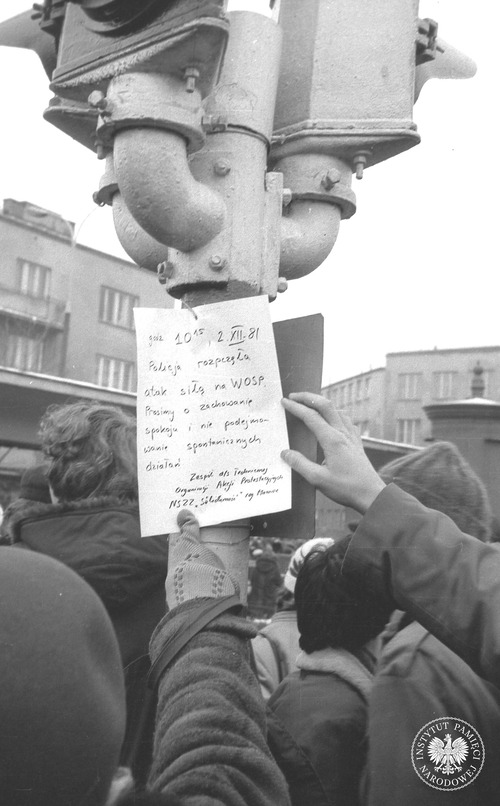 godz. 10¹⁵, 2.XII.81
Policja rozpoczęła
atak siłą na WOSP.
Prosimy o zachowanie
spokoju i nie podejmo-
wanie spontanicznych
działań
Zespół d/s Technicznej
Organizacji Akcji Protestacyjnych
NSZZ "Solidarność" reg Mazowsze
INSTYTUT PAMIĘCI
NARODOWEJ